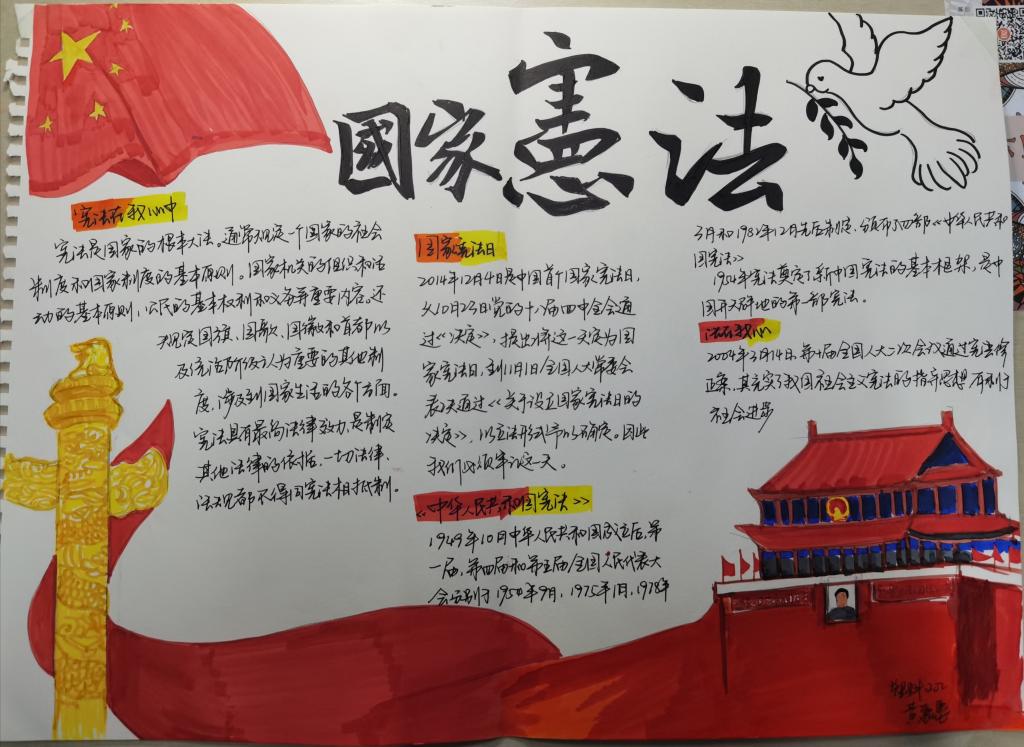 國家憲法
宪法在我心中
宪法是国家的根本大法。通常规定一个国家的社会
制度和国家制度的基本原则。国家机关的组织和活
动的基本原则，公民的基本权利和义务等重要内容。还
规定国旗、国歌、国徽和首都以
及统治阶级认为重要的其他制
度，涉及到国家生活的各个方面。
宪法具有最高法律效力，是制定
其他法律的依据，一切法律、
法规都不得同宪法相抵制。
国家宪法日
2014年12月4日是中国首个国家宪法日，
从10月23日党的十八届四中全会通
过《决定》，提出将这一天定为国
家宪法日，到11月1日全国人大常委会
表决通过《关于设立国家宪法日的
决定》，以立法形式予以确定。因此
我们必须牢记这一天。
《中华人民共和国宪法》
1949年10月中华人民共和国成立后，第
一届，第四届和第五届全国人民代表大
会分别于1954年9月，1975年1月，1978年
3月和1982年12月先后制定、颁布了四部《中华人民共和
国宪法》
1954年宪法奠定了新中国宪法的基本框架，是中
国开天辟地的第一部宪法。
法在我心
2004年3月14日，第十届全国人大二次会议通过宪法修
正案，其充实了我国社会主义宪法的指导思想 有利于
社会进步